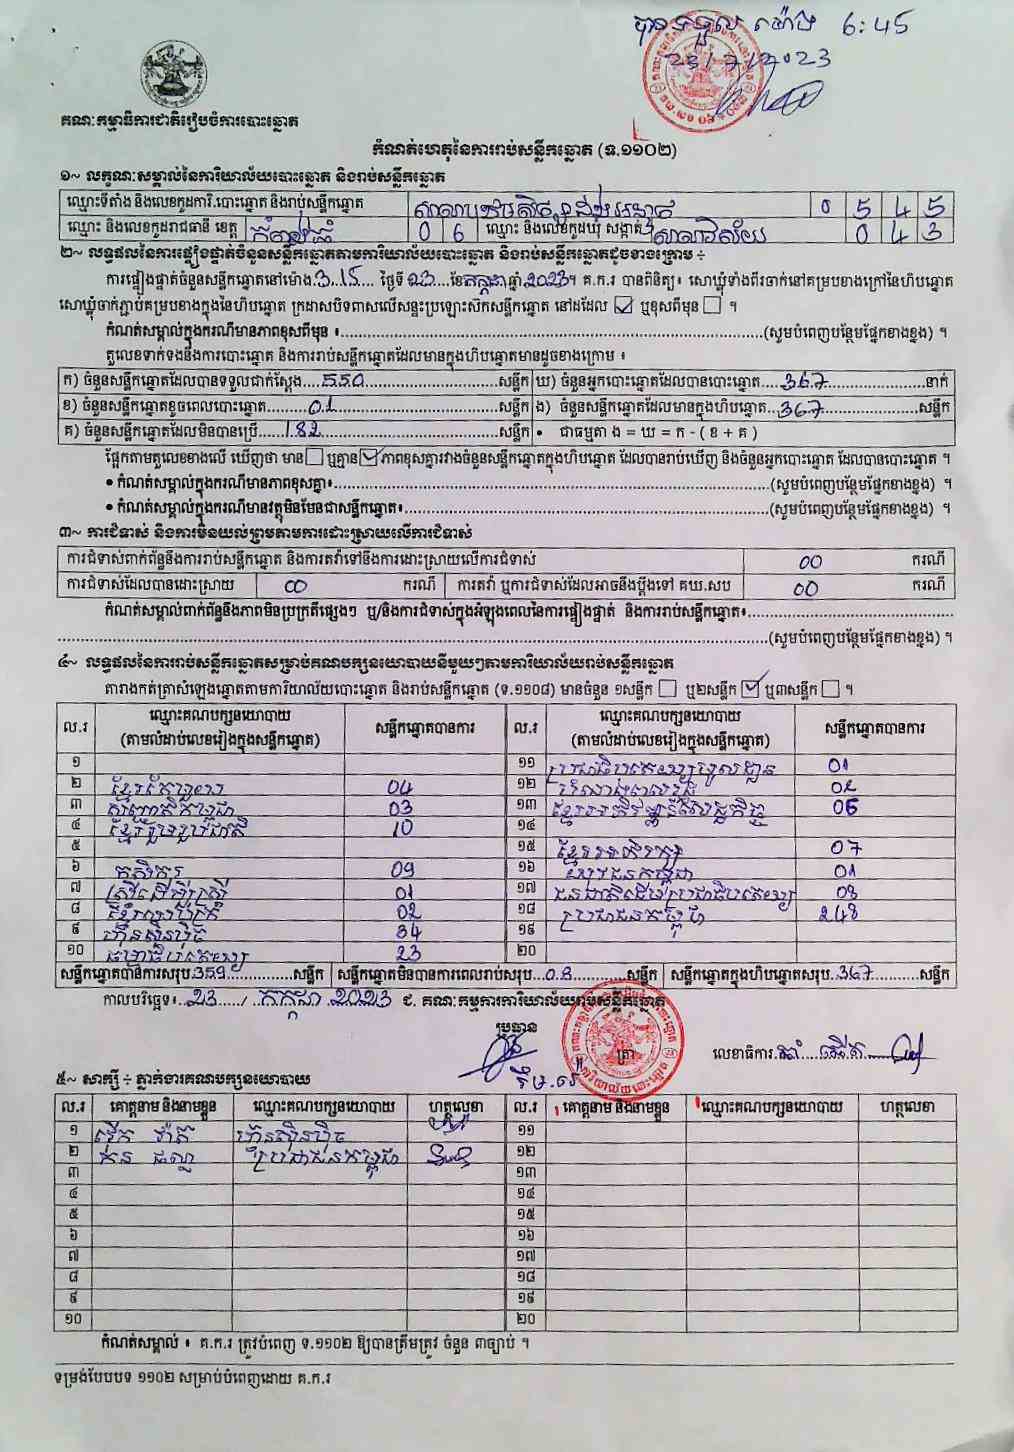 បានទទួល ម៉ោង 6:45
23/7/2023
គណៈកម្មាធិការជាតិរៀបចំការបោះឆ្នោត
កំណត់ហេតុនៃការរាប់សន្លឹកឆ្នោត (ទ.១១០២)
១~ លក្ខណៈសម្គាល់នៃការិយាល័យបោះឆ្នោត និងរាប់សន្លឹកឆ្នោត
ឈ្មោះទីតាំង និងលេខកូដការិ.បោះឆ្នោត និងរាប់សន្លឹកឆ្នោត 0 5 4 5
ឈ្មោះ និងលេខកូដរាជធានី ខេត្ត កំពង់ធំ 0 6 ឈ្មោះ និងលេខកូដឃុំ សង្កាត់ សាលាវិស័យ 0 4 3
២~ លទ្ធផលនៃការផ្ទៀងផ្ទាត់ចំនួនសន្លឹកឆ្នោតតាមការិយាល័យបោះឆ្នោត និងរាប់សន្លឹកឆ្នោតដូចខាងក្រោម ÷
ការផ្ទៀងផ្ទាត់ចំនួនសន្លឹកឆ្នោតនៅម៉ោង 3.15 ថ្ងៃទី 23 ខែ កក្កដា ឆ្នាំ 2023។ គ.ក.រ បានពិនិត្យ៖ សោឃ្លុំទាំងពីរចាក់នៅគម្របខាងក្រៅនៃហិបឆ្នោត
សោឃ្លុំចាក់ភ្ជាប់គម្របខាងក្នុងនៃហិបឆ្នោត ក្រដាសបិទពាសលើសន្ទះប្រឡោះស៊កសន្លឹកឆ្នោត នៅដដែល ☑ ឬខុសពីមុន ☐ ។
កំណត់សម្គាល់ក្នុងករណីមានភាពខុសពីមុន ៖ (សូមបំពេញបន្ថែមផ្នែកខាងខ្នង) ។
តួលេខទាក់ទងនឹងការបោះឆ្នោត និងការរាប់សន្លឹកឆ្នោតដែលមានក្នុងហិបឆ្នោតមានដូចខាងក្រោម ៖
ក) ចំនួនសន្លឹកឆ្នោតដែលបានទទួលជាក់ស្តែង 550 សន្លឹក ឃ) ចំនួនអ្នកបោះឆ្នោតដែលបានបោះឆ្នោត 367 នាក់
ខ) ចំនួនសន្លឹកឆ្នោតខូចពេលបោះឆ្នោត 01 សន្លឹក ង) ចំនួនសន្លឹកឆ្នោតដែលមានក្នុងហិបឆ្នោត 367 សន្លឹក
គ) ចំនួនសន្លឹកឆ្នោតដែលមិនបានប្រើ 182 សន្លឹក • ជាធម្មតា ង = ឃ = ក - ( ខ + គ )
ផ្អែកតាមតួលេខខាងលើ ឃើញថា មាន ☐ ឬគ្មាន ☑ ភាពខុសគ្នារវាងចំនួនសន្លឹកឆ្នោតក្នុងហិបឆ្នោត ដែលបានរាប់ឃើញ និងចំនួនអ្នកបោះឆ្នោត ដែលបានបោះឆ្នោត ។
• កំណត់សម្គាល់ក្នុងករណីមានភាពខុសគ្នា៖ (សូមបំពេញបន្ថែមផ្នែកខាងខ្នង) ។
• កំណត់សម្គាល់ក្នុងករណីមានវត្ថុមិនមែនជាសន្លឹកឆ្នោត៖ (សូមបំពេញបន្ថែមផ្នែកខាងខ្នង) ។
៣~ ការជំទាស់ និងការមិនយល់ព្រមតាមការដោះស្រាយលើការជំទាស់
ការជំទាស់ពាក់ព័ន្ធនឹងការរាប់សន្លឹកឆ្នោត និងការតវ៉ាទៅនឹងការដោះស្រាយលើការជំទាស់ 00 ករណី
ការជំទាស់ដែលបានដោះស្រាយ 00 ករណី ការតវ៉ា ឬការជំទាស់ដែលអាចនឹងប្តឹងទៅ គឃ.សប 00 ករណី
កំណត់សម្គាល់ពាក់ព័ន្ធនឹងភាពមិនប្រក្រតីផ្សេងៗ ឬ/និងការជំទាស់ក្នុងអំឡុងពេលនៃការផ្ទៀងផ្ទាត់ និងការរាប់សន្លឹកឆ្នោត៖
(សូមបំពេញបន្ថែមផ្នែកខាងខ្នង) ។
៤~ លទ្ធផលនៃការរាប់សន្លឹកឆ្នោតសម្រាប់គណបក្សនយោបាយនីមួយៗតាមការិយាល័យរាប់សន្លឹកឆ្នោត
តារាងកត់ត្រាសំឡេងឆ្នោតតាមការិយាល័យបោះឆ្នោត និងរាប់សន្លឹកឆ្នោត (ទ.១១០៨) មានចំនួន ១សន្លឹក ☐ ឬ២សន្លឹក ☑ ឬ៣សន្លឹក ☐ ។
ល.រ ឈ្មោះគណបក្សនយោបាយ សន្លឹកឆ្នោតបានការ ល.រ ឈ្មោះគណបក្សនយោបាយ សន្លឹកឆ្នោតបានការ
(តាមលំដាប់លេខរៀងក្នុងសន្លឹកឆ្នោត) (តាមលំដាប់លេខរៀងក្នុងសន្លឹកឆ្នោត)
១ ១១ ប្រជាធិបតេយ្យមូលដ្ឋាន 01
២ ខ្មែរតែមួយ 04 ១២ 02
៣ សញ្ជាតិកម្ពុជា 03 ១៣ ខ្មែរអភិវឌ្ឍន៍សេដ្ឋកិច្ច 06
៤ ខ្មែររួបរួមជាតិ 10 ១៤
៥ ១៥ ខ្មែរអភិរក្ស 07
៦ កសិករ 09 ១៦ យុវជនកម្ពុជា 01
៧ ស្ត្រីដើម្បីស្ត្រី 01 ១៧ ជនជាតិដើមប្រជាធិបតេយ្យ 03
៨ ខ្មែរឈប់ក្រ 02 ១៨ ប្រជាជនកម្ពុជា 248
៩ ហ៊្វុនស៊ិនប៉ិច 34 ១៩
១០ ធម្មាធិបតេយ្យ 23 ២០
សន្លឹកឆ្នោតបានការសរុប 359 សន្លឹក សន្លឹកឆ្នោតមិនបានការពេលរាប់សរុប 08 សន្លឹក សន្លឹកឆ្នោតក្នុងហិបឆ្នោតសរុប 367 សន្លឹក
កាលបរិច្ឆេទ៖ 23 / កក្កដា 2023 ជ. គណៈកម្មការការិយាល័យរាប់សន្លឹកឆ្នោត
ប្រធាន
ត្រា លេខាធិការ
៥~ សាក្សី ÷ ភ្នាក់ងារគណបក្សនយោបាយ
ល.រ គោត្តនាម និងនាមខ្លួន ឈ្មោះគណបក្សនយោបាយ ហត្ថលេខា ល.រ គោត្តនាម និងនាមខ្លួន ឈ្មោះគណបក្សនយោបាយ ហត្ថលេខា
១ ហ៊្វុនស៊ិនប៉ិច ១១
២ ប្រជាជនកម្ពុជា ១២
៣ ១៣
៤ ១៤
៥ ១៥
៦ ១៦
៧ ១៧
៨ ១៨
៩ ១៩
១០ ២០
កំណត់សម្គាល់ ៖ គ.ក.រ ត្រូវបំពេញ ទ.១១០២ ឱ្យបានត្រឹមត្រូវ ចំនួន ៣ច្បាប់ ។
ទម្រង់បែបបទ ១១០២ សម្រាប់បំពេញដោយ គ.ក.រ